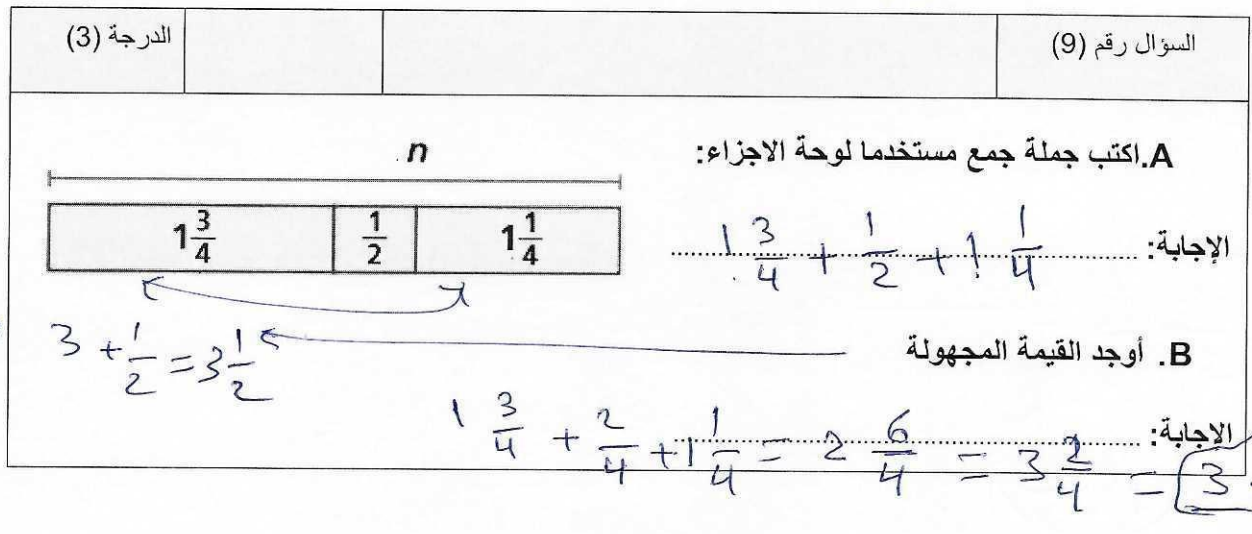 السؤال رقم (9) الدرجة (3)
A.اكتب جملة جمع مستخدما لوحة الاجزاء:
n
1 3/4 1/2 1 1/4
الإجابة: 1 3/4 + 1/2 + 1 1/4
B. أوجد القيمة المجهولة
3 + 1/2 = 3 1/2
الإجابة: 1 3/4 + 2/4 + 1 1/4 = 2 6/4 = 3 2/4 = 3